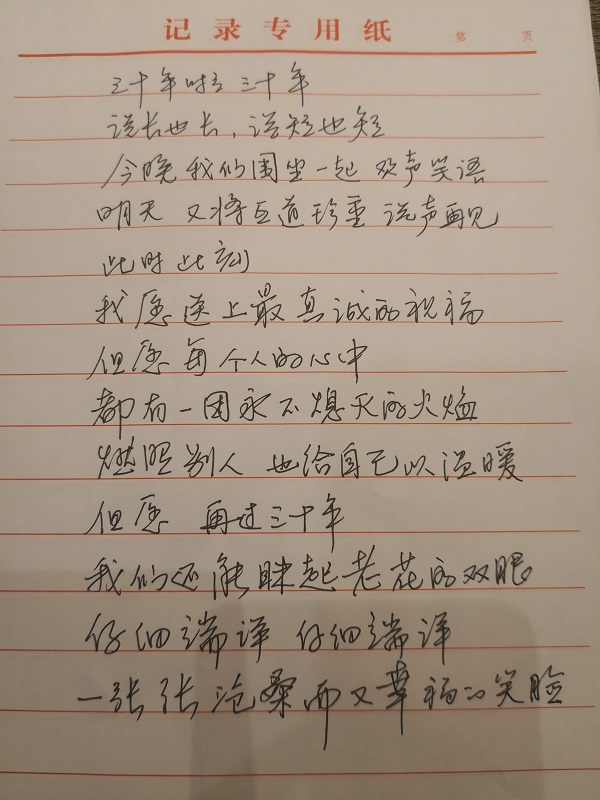 记录专用纸 第 页
三十年 三十年
说长也长，说短也短
今晚 我们围坐一起 欢声笑语
明天 又将互道珍重 说声再见
此时此刻
我愿送上最真诚的祝福
但愿每个人的心中
都有一团永不熄灭的火焰
燃照别人 也给自己以温暖
但愿 再过三十年
我们还能眯起老花的双眼
仔细端详 仔细端详
一张张沧桑而又幸福的笑脸